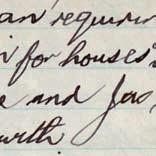 an requirin
for houses
and Jas
with